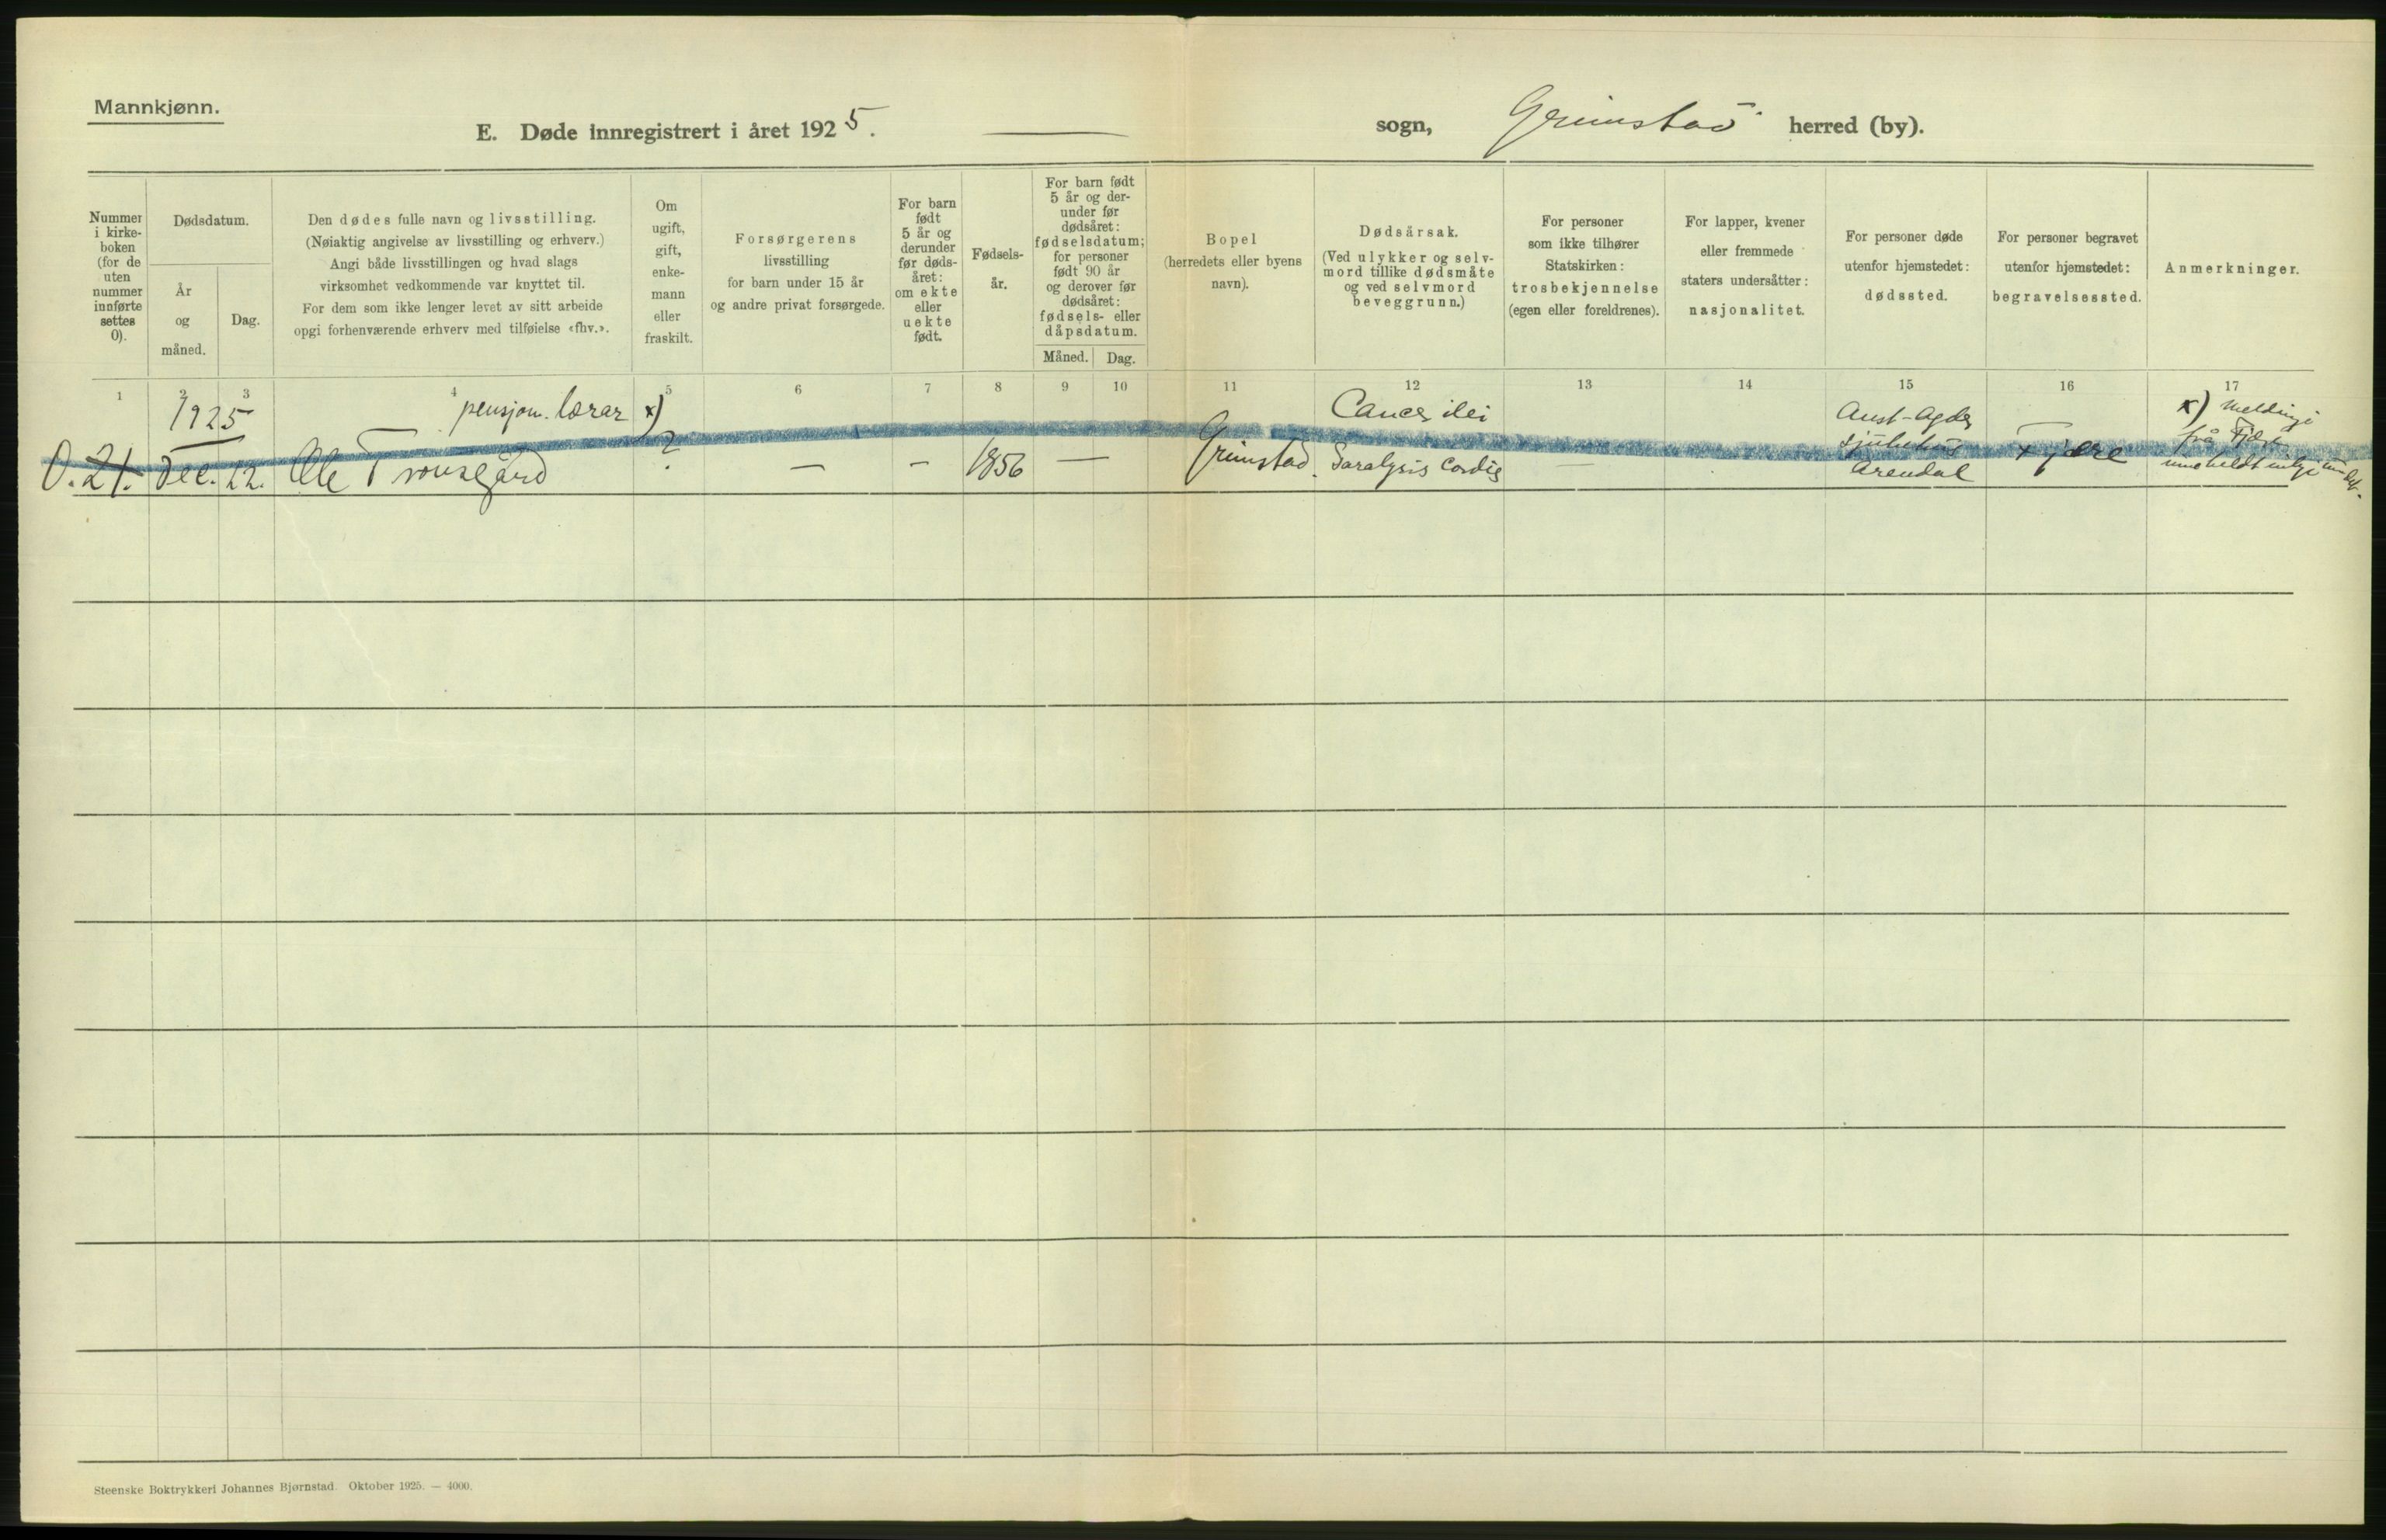 Mannkjønn.
E. Døde innregistrert i året 1925. — sogn, Grimstad herred (by).
Nummer
i kirke-
boken
(for de
uten
nummer
innførte
settes
0).
Dødsdatum.
År
og
måned.
Dag.
Den dødes fulle navn og livsstilling.
(Nøiaktig angivelse av livsstilling og erhverv.)
Angi både livsstillingen og hvad slags
virksomhet vedkommende var knyttet til.
For dem som ikke lenger levet av sitt arbeide
opgi forhenværende erhverv med tilføielse «fhv.».
Om
ugift,
gift,
enke-
mann
eller
fraskilt.
Forsørgerens
livsstilling
for barn under 15 år
og andre privat forsørgede.
For barn
født
5 år og
derunder
før døds-
året:
om ekte
eller
uekte
født.
Fødsels-
år.
For barn født
5 år og der-
under før
dødsåret:
fødselsdatum;
for personer
født 90 år
og derover før
dødsåret:
fødsels- eller
dåpsdatum.
Måned. Dag.
Bopel
(herredets eller byens
navn).
Dødsårsak.
(Ved ulykker og selv-
mord tillike dødsmåte
og ved selvmord
beveggrunn.)
For personer
som ikke tilhører
Statskirken:
trosbekjennelse
(egen eller foreldrenes).
For lapper, kvener
eller fremmede
staters undersåtter:
nasjonalitet.
For personer døde
utenfor hjemstedet:
dødssted.
For personer begravet
utenfor hjemstedet:
begravelsessted.
Anmerkninger.
1 2 3 4 5 6 7 8 9 10 11 12 13 14 15 16 17
0. 21.
1925
Dec. 22.
pensjon. lærar
Ole
x)
?
—
–
1856
—
Grimstad.
Cancer ilei
Paralysis Cordis
—
Aust-Agder
sjukehus
Arendal
Tjære
x) Meldingi
frå Tjære
inneheldt inkje um det.
Steenske Boktrykkeri Johannes Bjørnstad. Oktober 1925. — 4000.